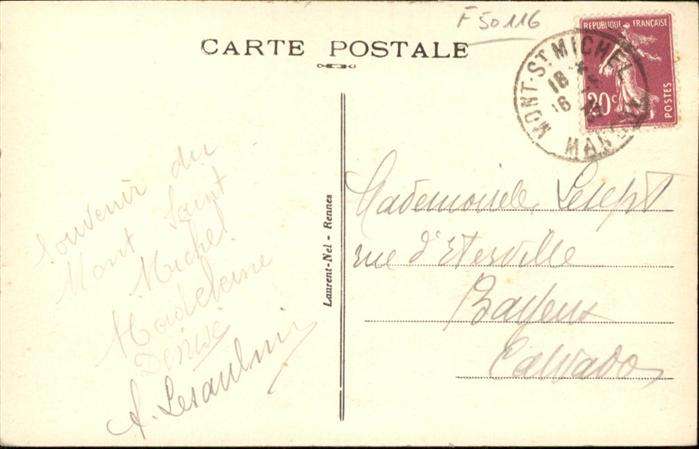 F 50116
CARTE POSTALE
REPUBLIQUE FRANÇAISE
20c
POSTES
MONT-ST MICHEL
18
16
MANCHE
Souvenir du
Mont Saint
Michel
Madeleine
Denise
A. Lesaulnier
Laurent-Nel - Rennes
Mademoiselle
rue d'Eterville
Bayeux
Calvados